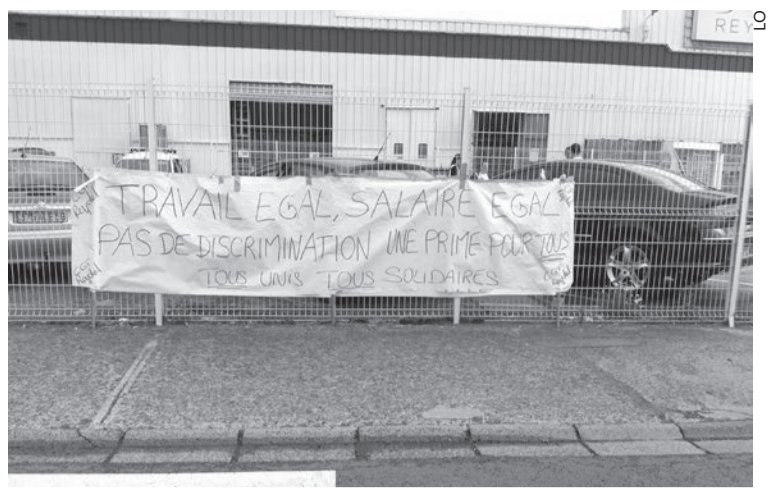 REY
TRAVAIL EGAL, SALAIRE EGAL
PAS DE DISCRIMINATION UNE PRIME POUR TOUS
TOUS UNIS TOUS SOLIDAIRES